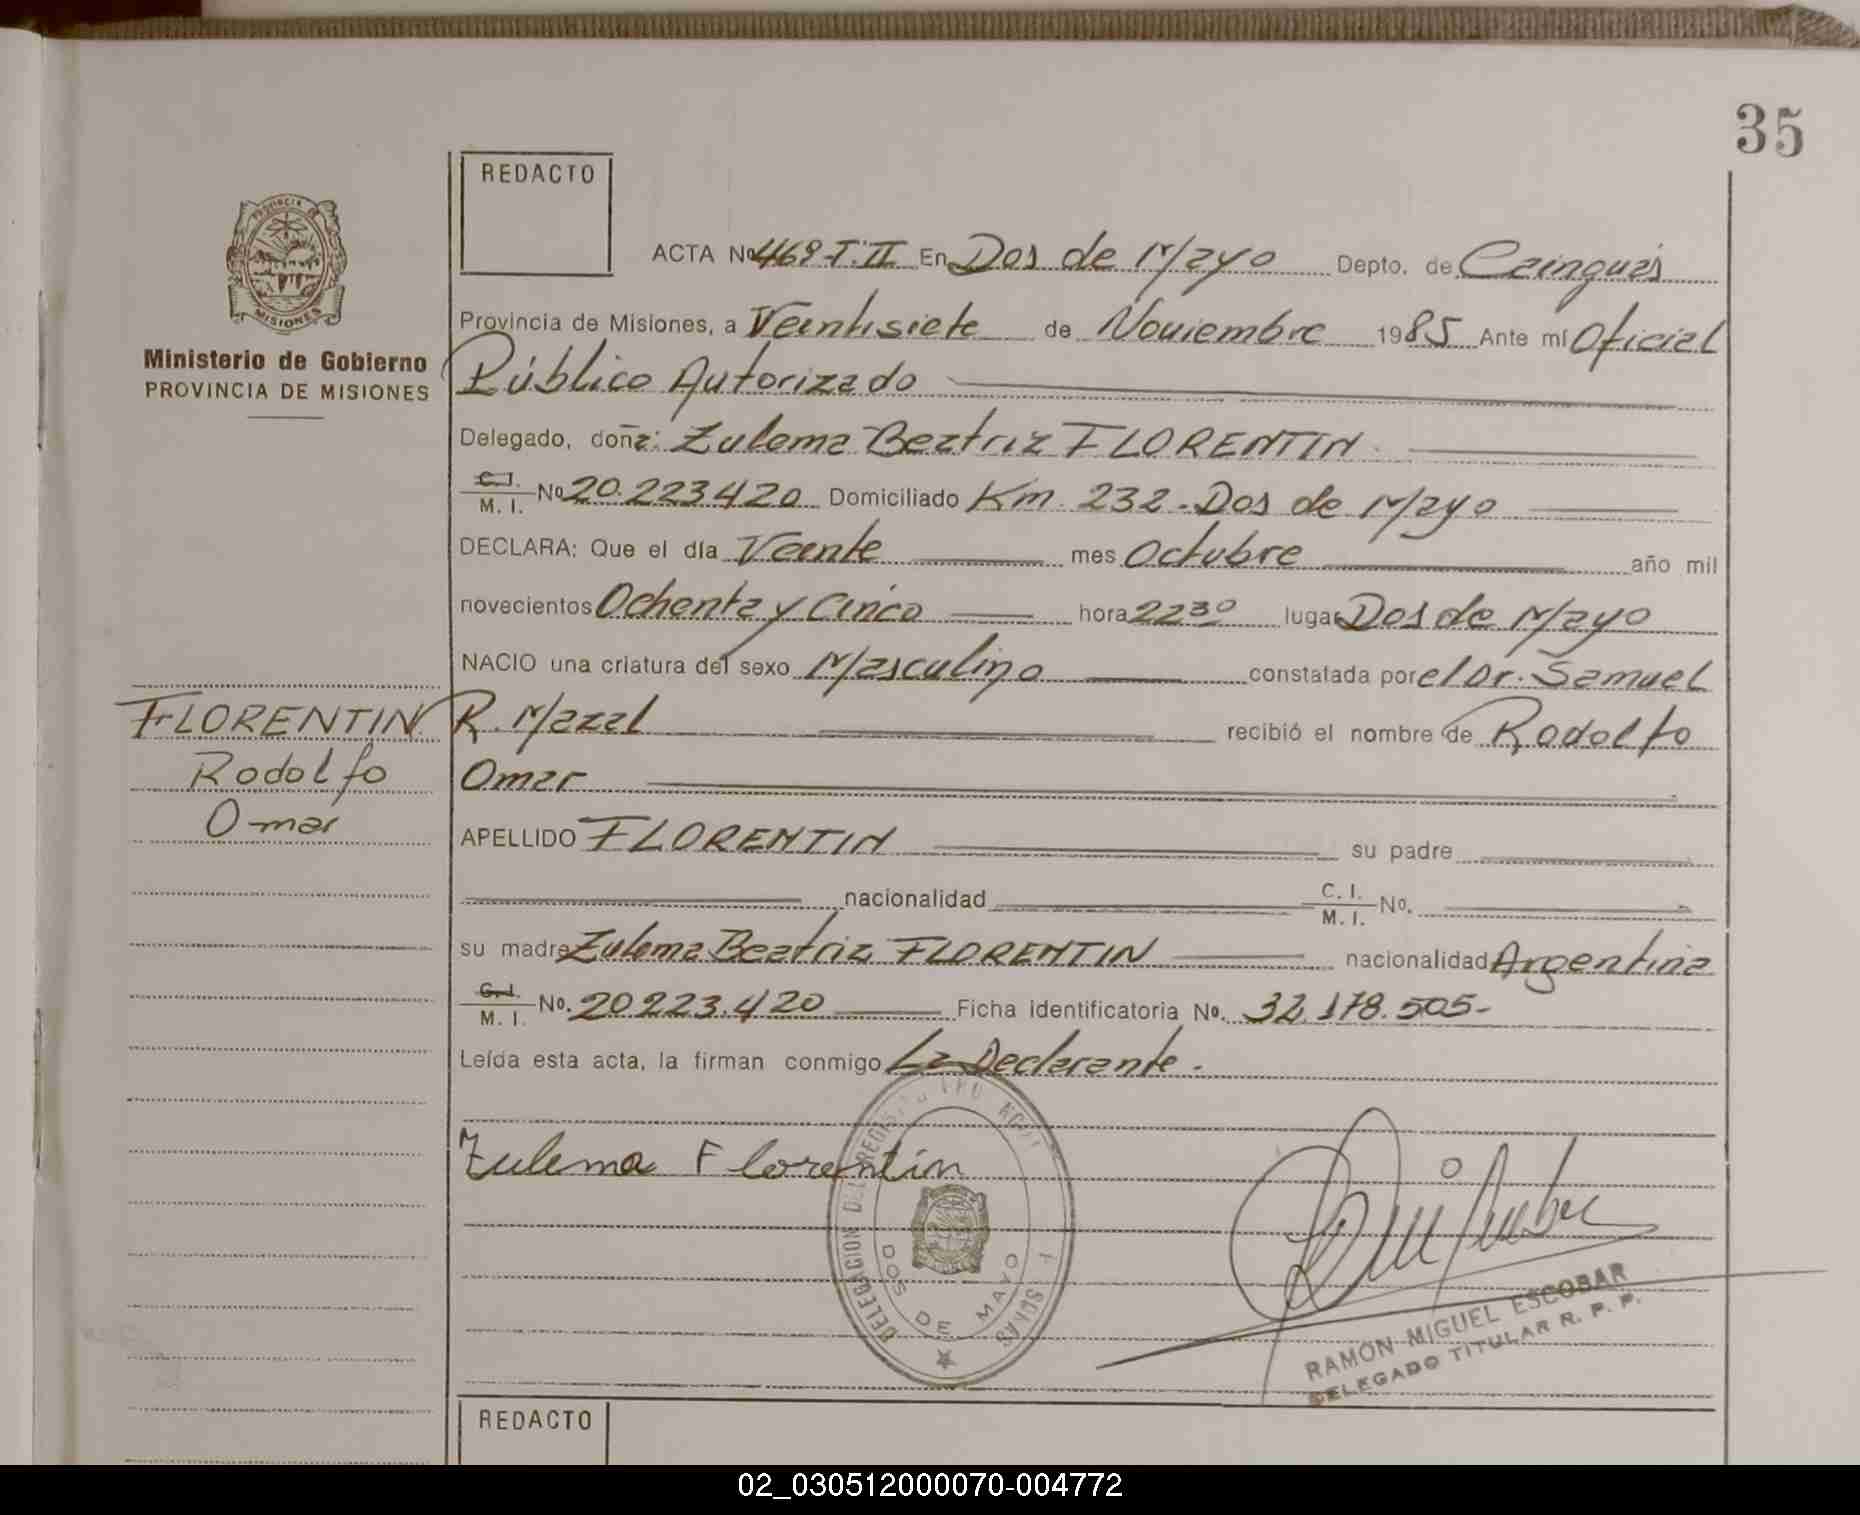 35
REDACTO
ACTA Nº 469-T:II En Dos de Mayo Depto. de Cainguás
Provincia de Misiones, a Veintisiete de Noviembre 1985 Ante mí Oficial
Ministerio de Gobierno
PROVINCIA DE MISIONES
Público Autorizado
Delegado, doña: Zulema Beatriz FLORENTIN
C.I.
M. I. Nº 20.223420 Domiciliado Km. 232-Dos de Mayo
DECLARA: Que el día Veinte mes Octubre año mil
novecientos Ochenta y Cinco hora 22 30 lugar Dos de Mayo
NACIO una criatura del sexo Masculino constatada por el Dr. Samuel
FLORENTIN
Rodolfo
Omar
R. Mazal recibió el nombre de Rodolfo
Omar
APELLIDO FLORENTIN su padre
nacionalidad C. I. M. I. Nº.
su madre Zulema Beatriz FLORENTIN nacionalidad Argentina
C.I.
M. I. Nº. 20223.420 Ficha identificatoria Nº. 32.178.505-
Leída esta acta, la firman conmigo La Declarante.
Zulema Florentin
DELEGACION DEL REGIST
DOS DE MAYO
RAMON MIGUEL ESCOBAR
DELEGADO TITULAR R. P. P.
REDACTO
02_030512000070-004772